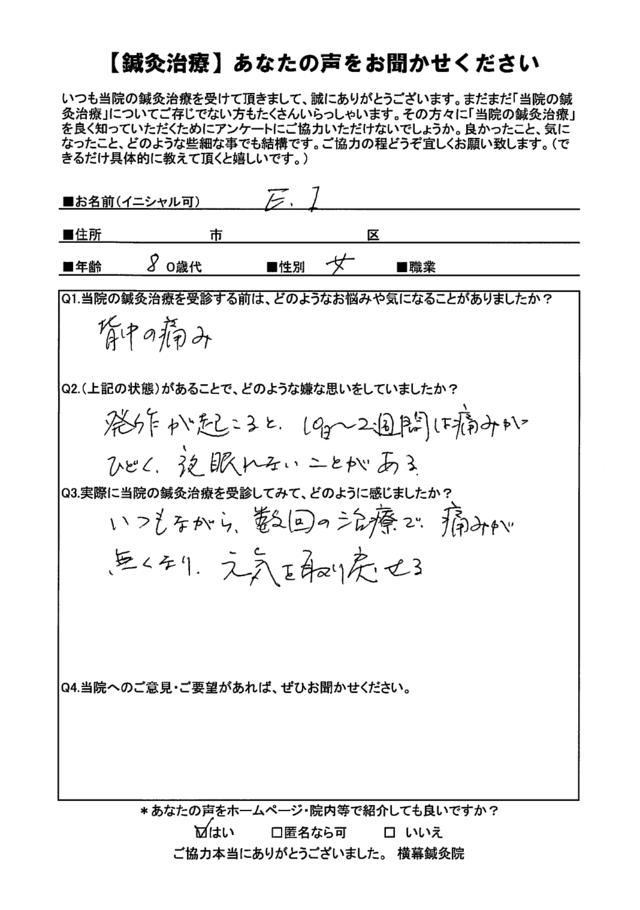 【鍼灸治療】あなたの声をお聞かせください
いつも当院の鍼灸治療を受けて頂きまして、誠にありがとうございます。まだまだ「当院の鍼
灸治療」についてご存じでない方もたくさんいらっしゃいます。その方々に「当院の鍼灸治療」
を良く知っていただくためにアンケートにご協力いただけないでしょうか。良かったこと、気に
なったこと、どのような些細な事でも結構です。ご協力の程どうぞ宜しくお願い致します。（で
きるだけ具体的に教えて頂くと嬉しいです。）
■お名前（イニシャル可） E.I
■住所 市 区
■年齢 8 0歳代 ■性別 女 ■職業
Q1.当院の鍼灸治療を受診する前は、どのようなお悩みや気になることがありましたか？
背中の痛み
Q2.（上記の状態）があることで、どのような嫌な思いをしていましたか？
発作が起こると、10日～2週間は痛みが
ひどく、夜眠れないことがある
Q3.実際に当院の鍼灸治療を受診してみて、どのように感じましたか？
いつもながら、数回の治療で、痛みが
無くなり、元気を取り戻せる
Q4.当院へのご意見・ご要望があれば、ぜひお聞かせください。
＊あなたの声をホームページ・院内等で紹介しても良いですか？
☑はい □匿名なら可 □ いいえ
ご協力本当にありがとうございました。 横幕鍼灸院